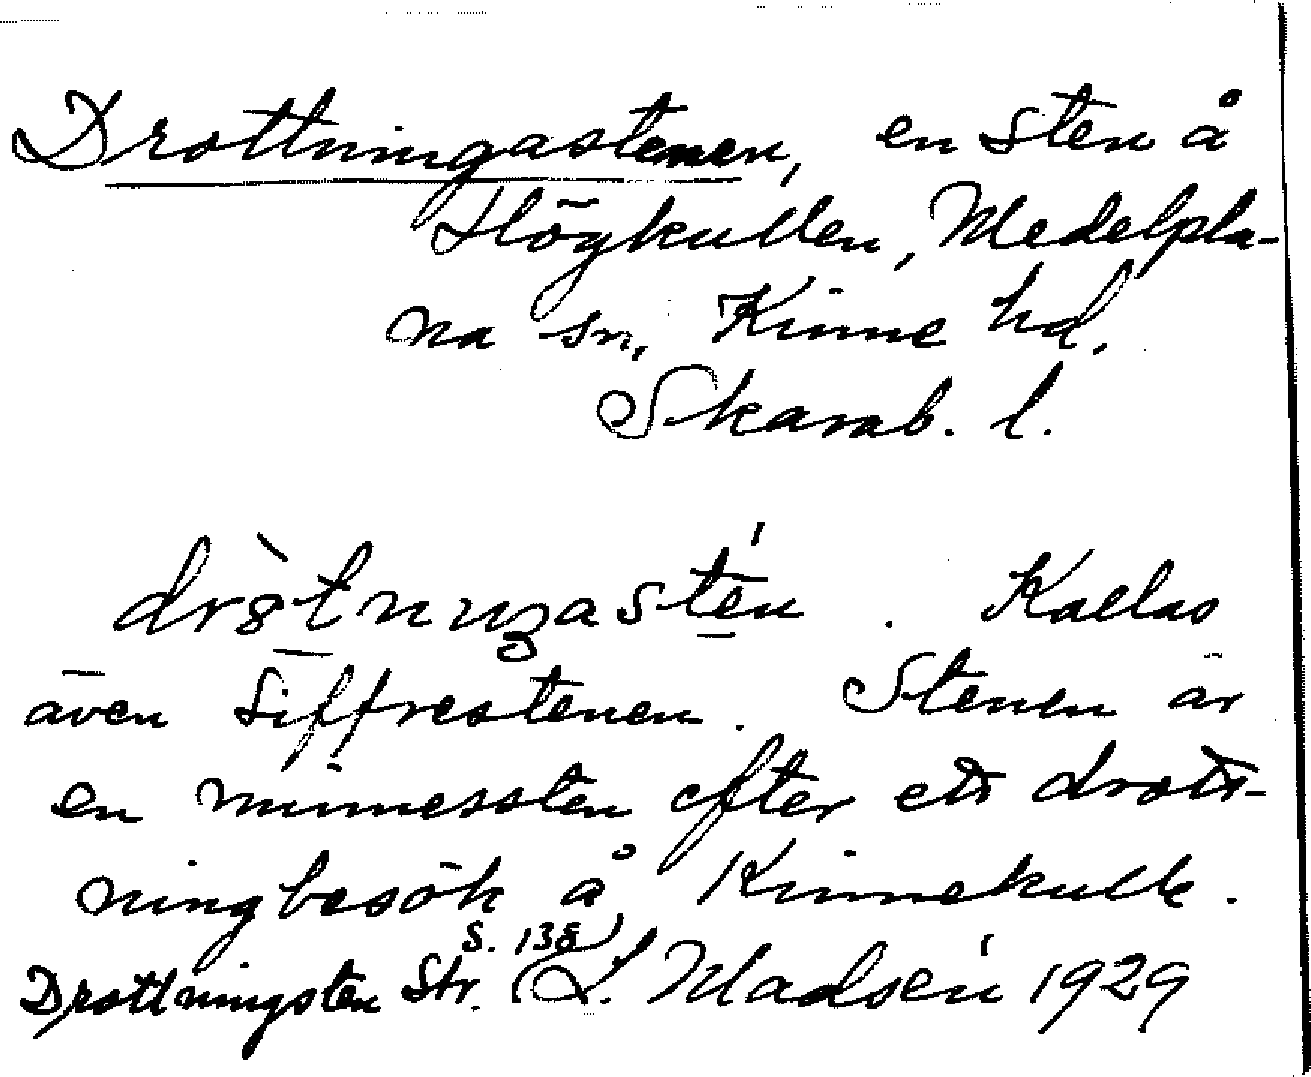 Drottningastenen, en sten å
Högkullen, Medelpla-
na sn, Kinne hd,
Skarab. l.
Kallas
även Siffrestenen. Stenen är
en minnessten efter ett drott-
ningbesök å Kinnekulle.
s. 138)
Drottningsten Str. (L. Madsén 1929